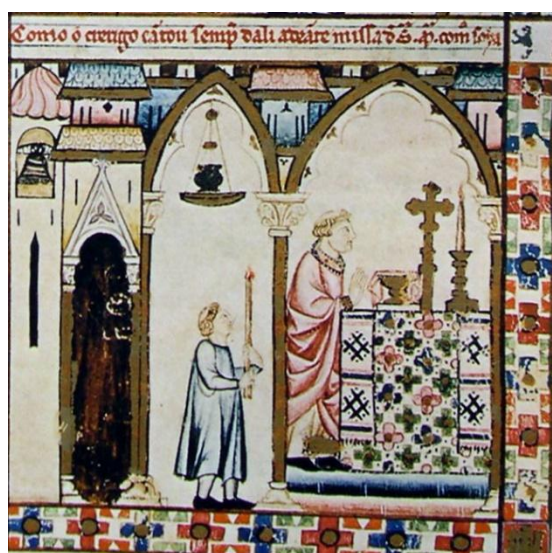 Como o crerigo cãtou semp̃ dali adeãte missa com̃ soya